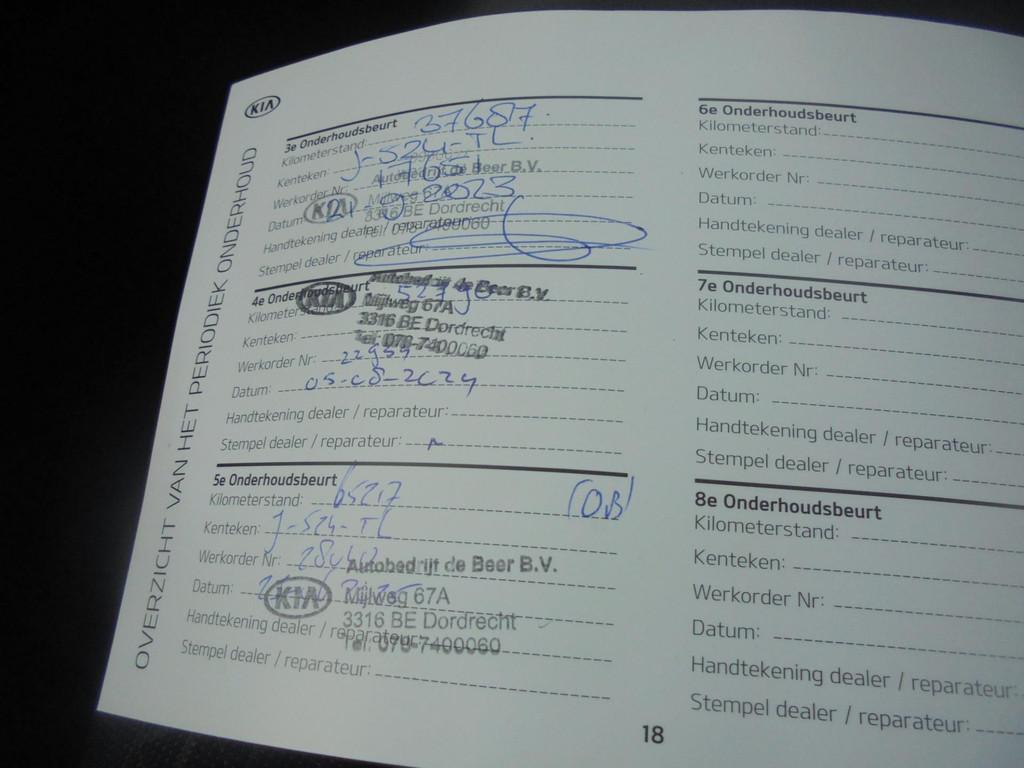 KIA
OVERZICHT VAN HET PERIODIEK ONDERHOUD
3e Onderhoudsbeurt
Kilometerstand: 37687
Kenteken: J-524-TL
Werkorder Nr:
Autobedrijf de Beer B.V.
Datum: 2023
KIA
Mijlweg 67A
3316 BE Dordrecht
Handtekening dealer / reparateur:
Tel. 078-7400060
Stempel dealer / reparateur:
4e Onderhoudsbeurt
KIA
Autobedrijf de Beer B.V.
Kilometerstand:
Mijlweg 67A
3316 BE Dordrecht
Kenteken:
Tel. 078-7400060
Werkorder Nr:
Datum: 05-08-2024
Handtekening dealer / reparateur:
Stempel dealer / reparateur:
5e Onderhoudsbeurt
Kilometerstand: 65217
Kenteken: J-524-TL
Werkorder Nr:
Autobedrijf de Beer B.V.
Datum:
KIA
Mijlweg 67A
3316 BE Dordrecht
Handtekening dealer / reparateur:
Tel. 078-7400060
Stempel dealer / reparateur:
6e Onderhoudsbeurt
Kilometerstand:
Kenteken:
Werkorder Nr:
Datum:
Handtekening dealer / reparateur:
Stempel dealer / reparateur:
7e Onderhoudsbeurt
Kilometerstand:
Kenteken:
Werkorder Nr:
Datum:
Handtekening dealer / reparateur:
Stempel dealer / reparateur:
8e Onderhoudsbeurt
Kilometerstand:
Kenteken:
Werkorder Nr:
Datum:
Handtekening dealer / reparateur:
Stempel dealer / reparateur:
18